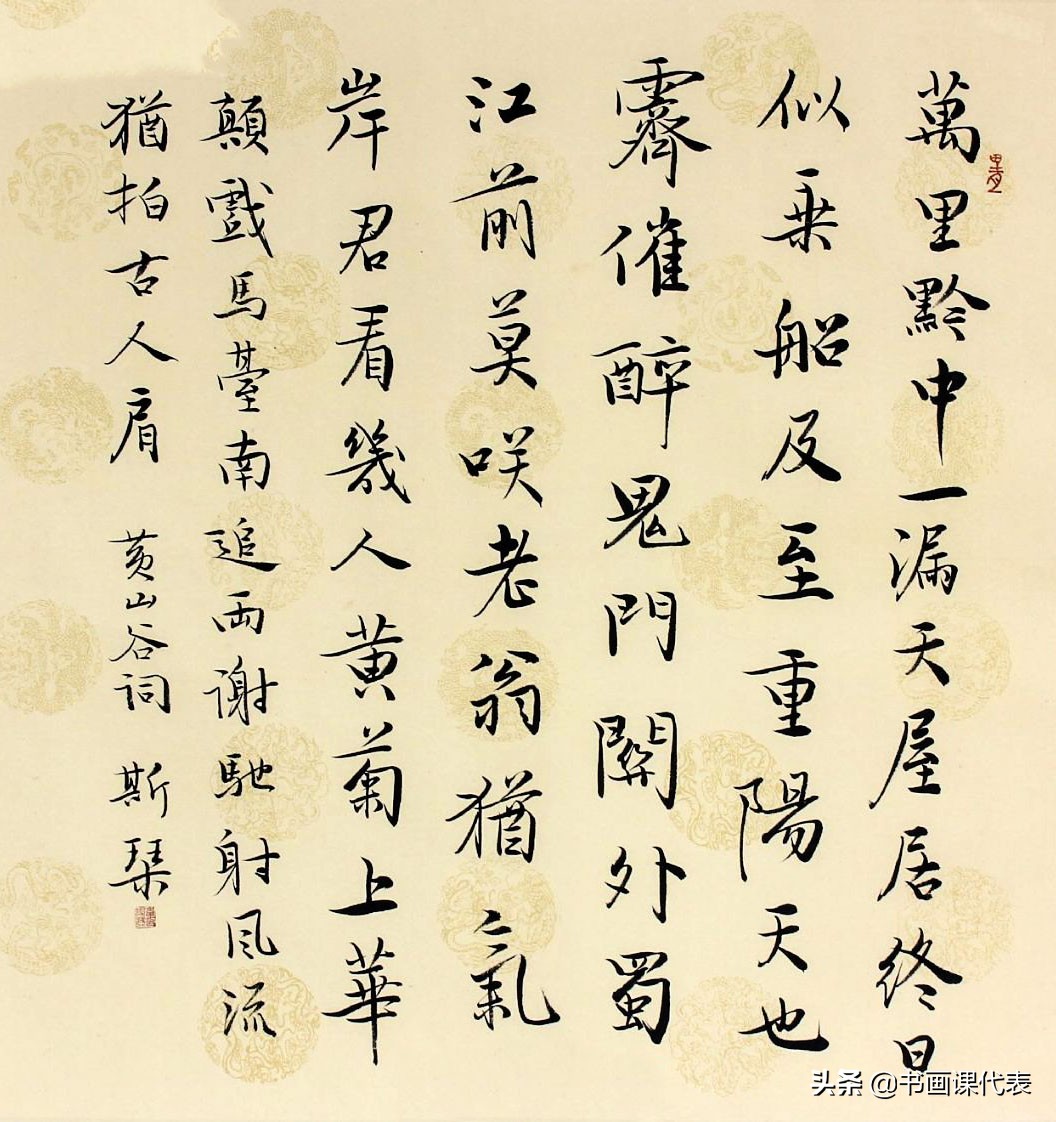 萬里黔中一漏天屋居終日
似乗船及至重陽天也
霽催醉鬼門關外蜀
江前莫咲老翁猶氣
岸君看幾人黄菊上華
顛戲馬臺南追两謝馳射風流
猶拍古人肩 黄山谷詞 斯琹
头条 @书画课代表